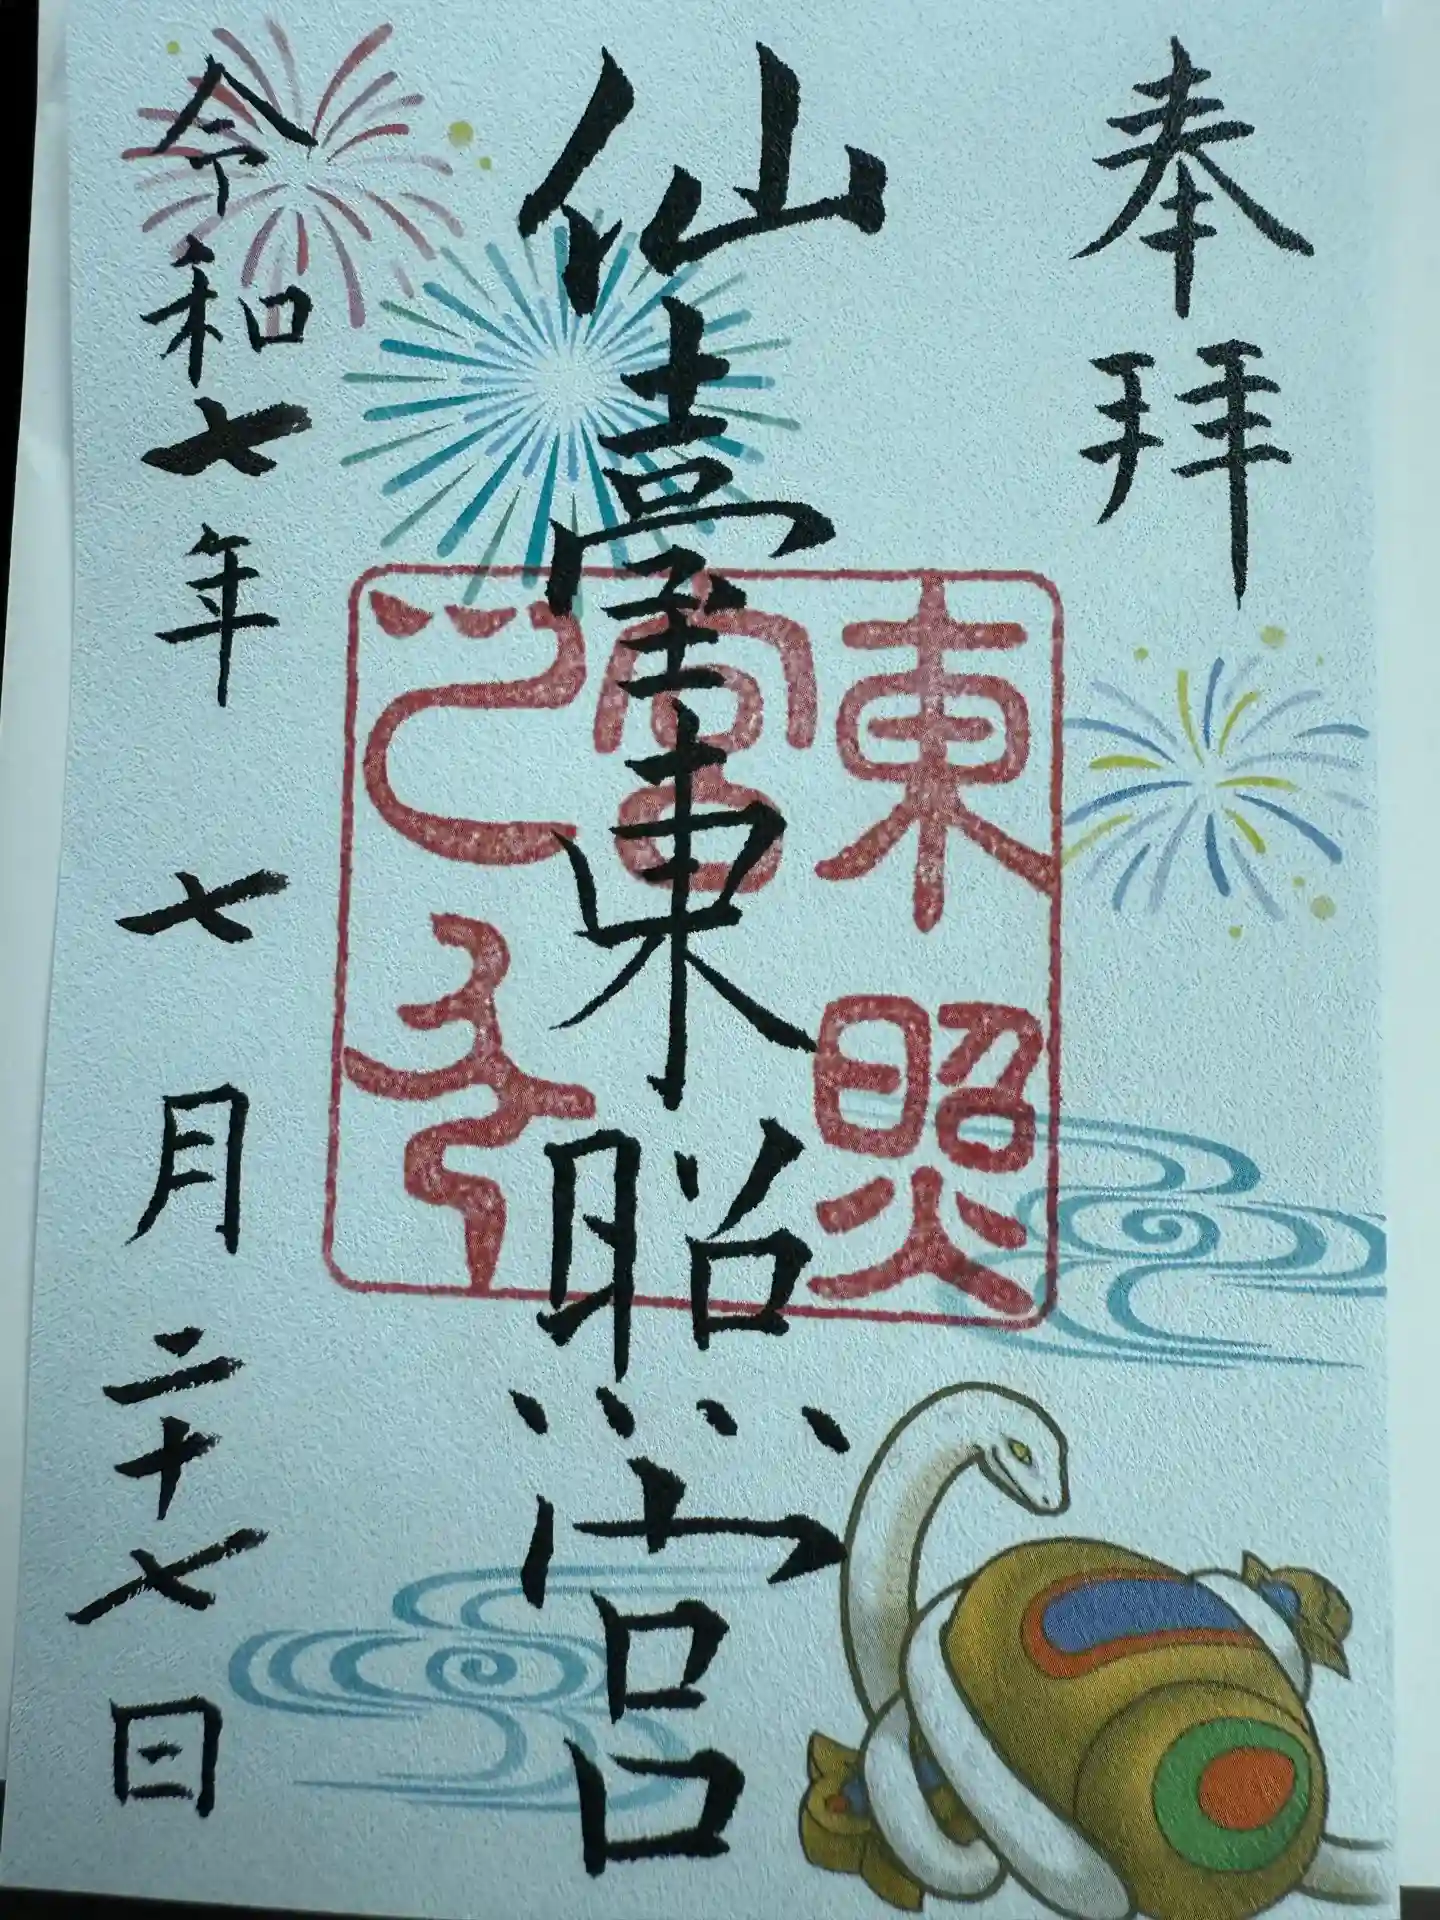 奉拝
仙臺東照宮
東照
宮
令和七年七月二十七日